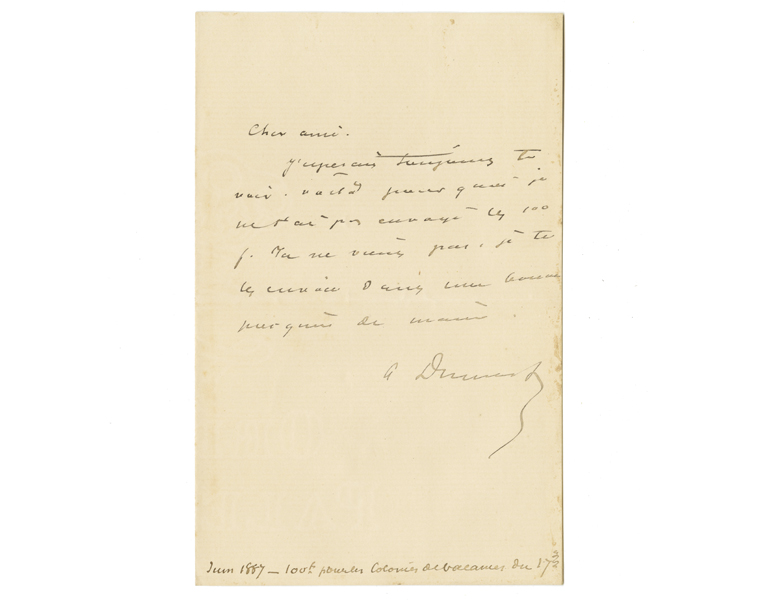 Cher ami.
J'esperais toujours te
voir. voilà pourquoi je
ne t'ai pas envoyé les 100
f. Tu ne viens pas. je te
les envoie Dans une bonne
poignée de main.
A Dumas f
Juin 1887 — 100f. pour les Colonies de vacances du 17